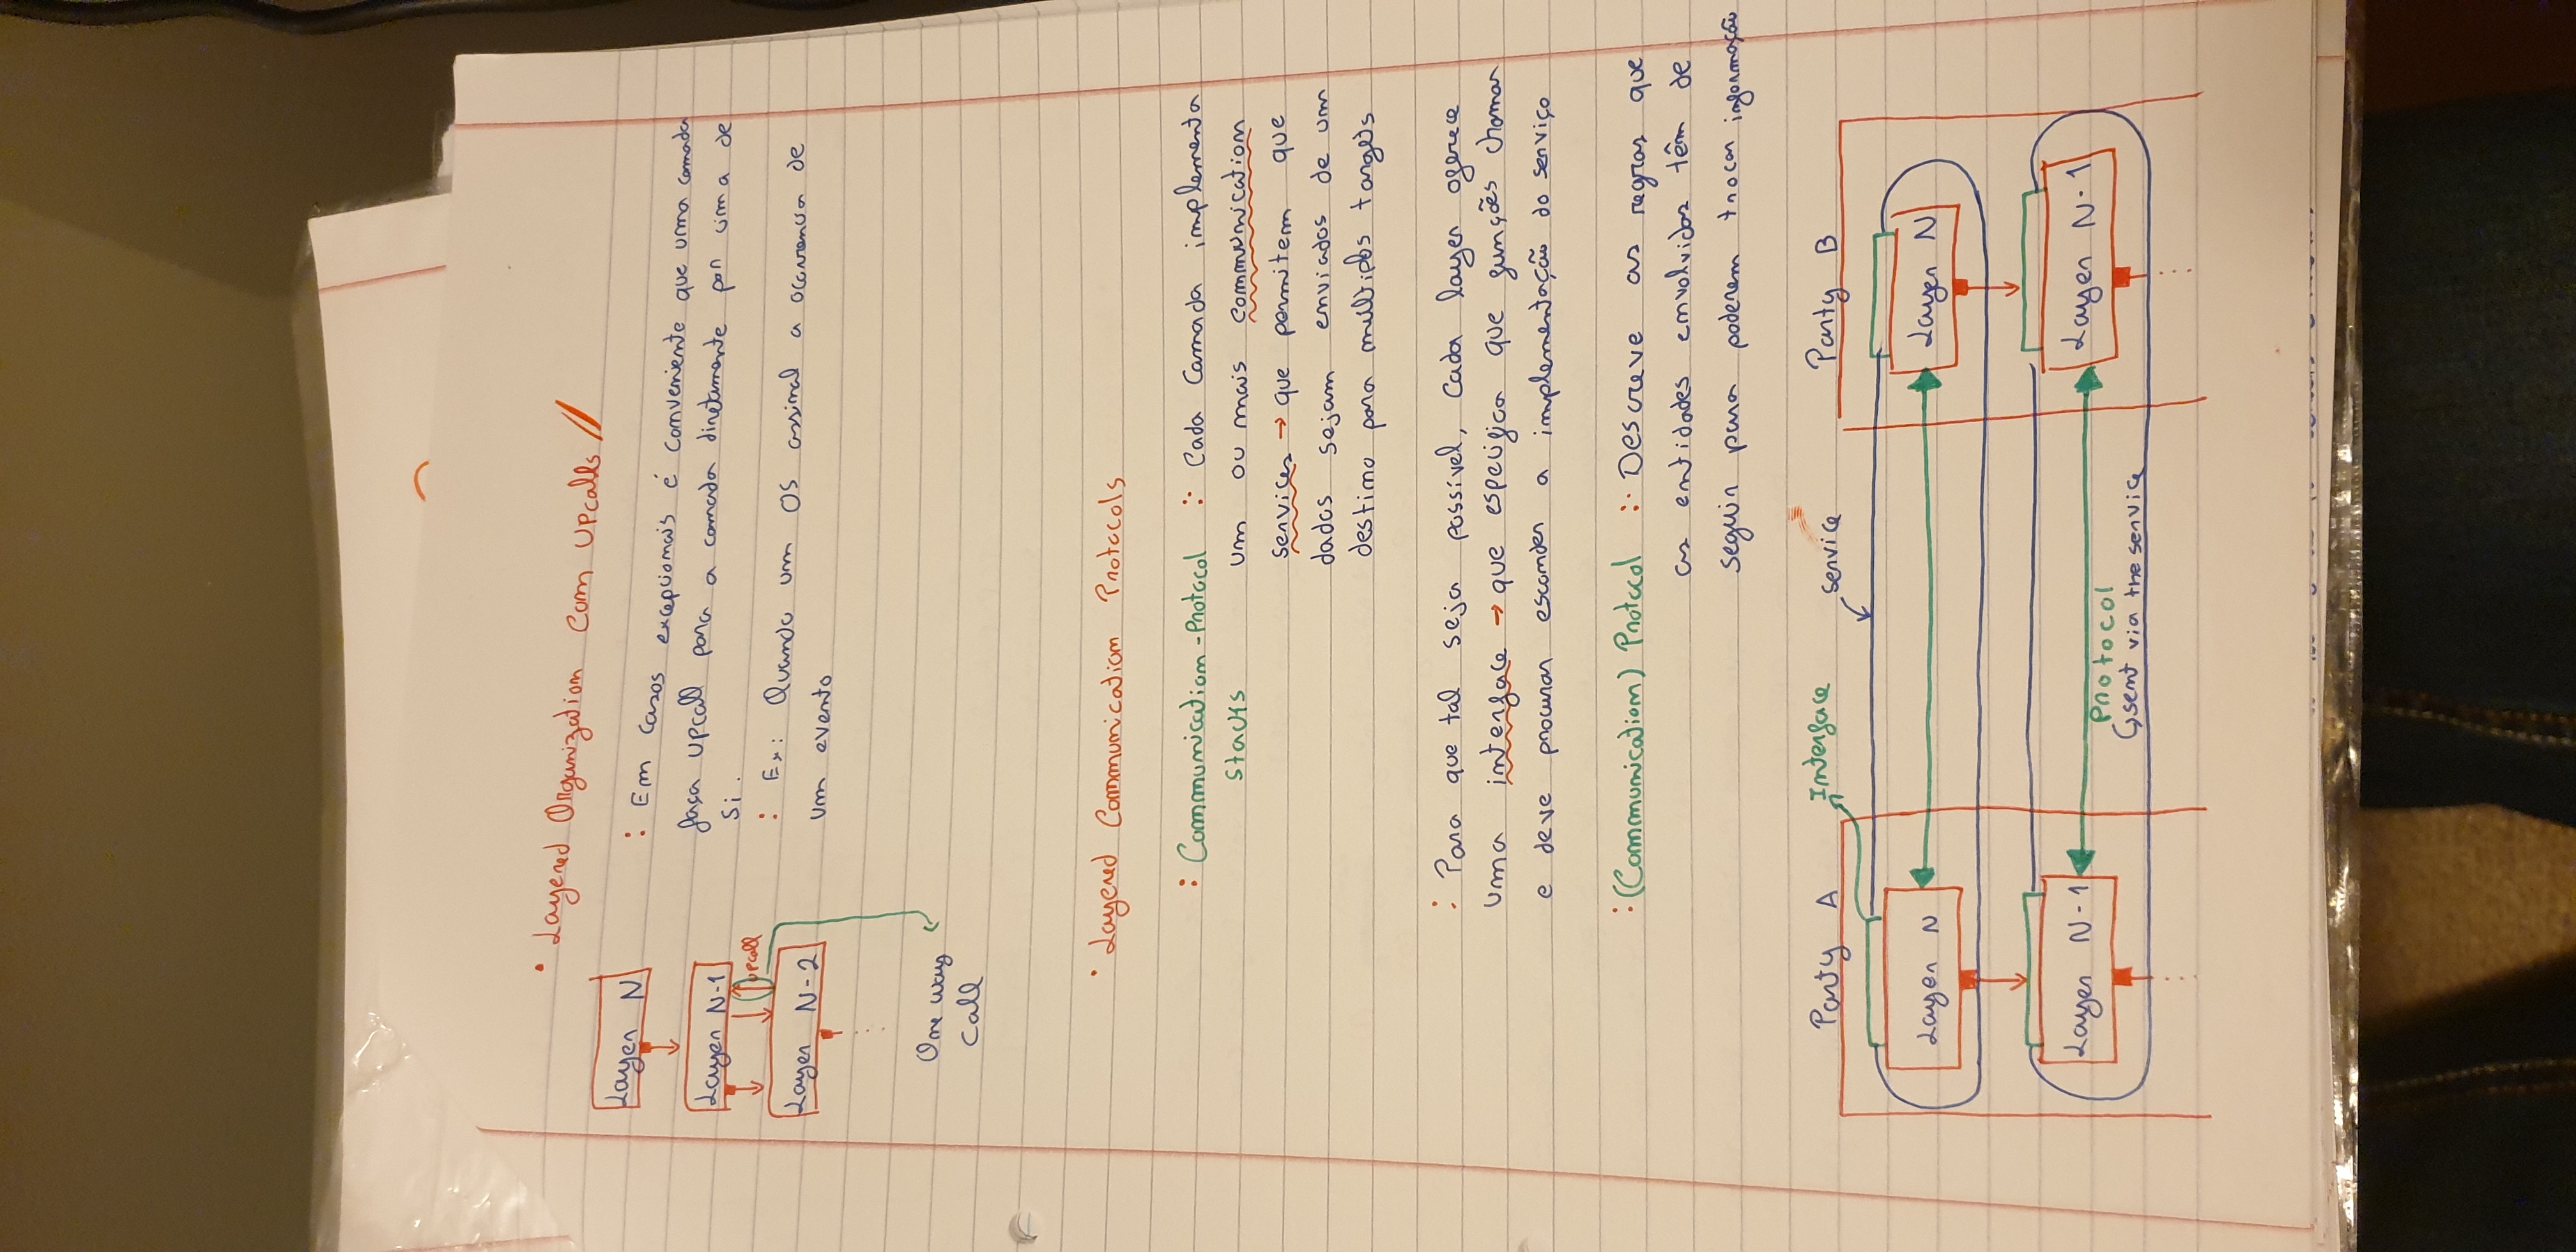 • Layered Organization com Upcalls //
Layer N
Layer N-1
upcall
Layer N-2
One way
call
: Em casos excepcionais é conveniente que uma camada
faça upcall para a camada diretamente por cima de
si.
: Ex: Quando um OS assinal a ocorrencia de
um evento
• Layered Communication Protocols
: Communication-Protocol :· Cada Camada implementa
Stacks um ou mais communication
services → que permitem que
dados sejam enviados de um
destino para múltiplos targets
: Para que tal seja possível, Cada layer oferece
uma interface → que especifica que funções chamar
e deve procurar esconder a implementação do serviço
:(Communication) Protocol :· Descreve as regras que
as entidades envolvidas têm de
seguir para poderem trocar informação
Party A Interface service Party B
Layer N Layer N
Layer N-1 Layer N-1
Protocol
↳sent via the service